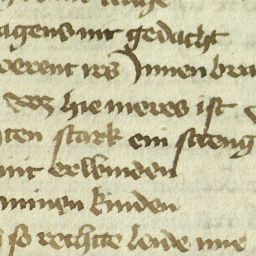 agens nit gedacht
oerent irs Innen bra
Was hie meres ist
ten stark ein streng
nit erlbinden
minen kinden
so rechtte leide nue